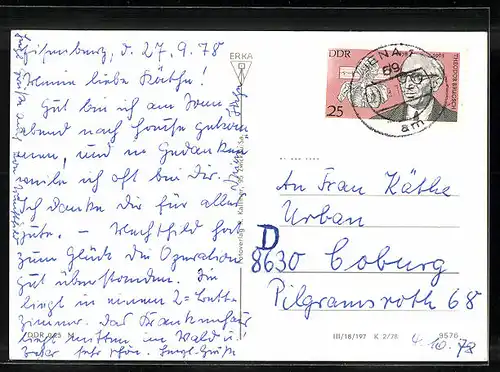 Eisenberg, d. 27.9.78
Meine liebe Käthe!
Gut bin ich am Sonn-
abend nach Hause gekom-
men, und in Gedanken
weile ich oft bei Dir.
Ich danke Dir für alles
Gute. – Mechthild hat
zum Glück die Operation
gut überstanden. Sie
liegt in einem 2-Bett-
zimmer. Das Krankenhaus
liegt mitten im Wald u.
sehr schön. Grüße
ERKA
DDR
25
THEODOR BRUGSCH
JENA 1
69
am
An Frau Käthe
Urban
D
8630 Coburg
Pilgramsroth 68
III/18/197 K 2/78
9576
4.10.78